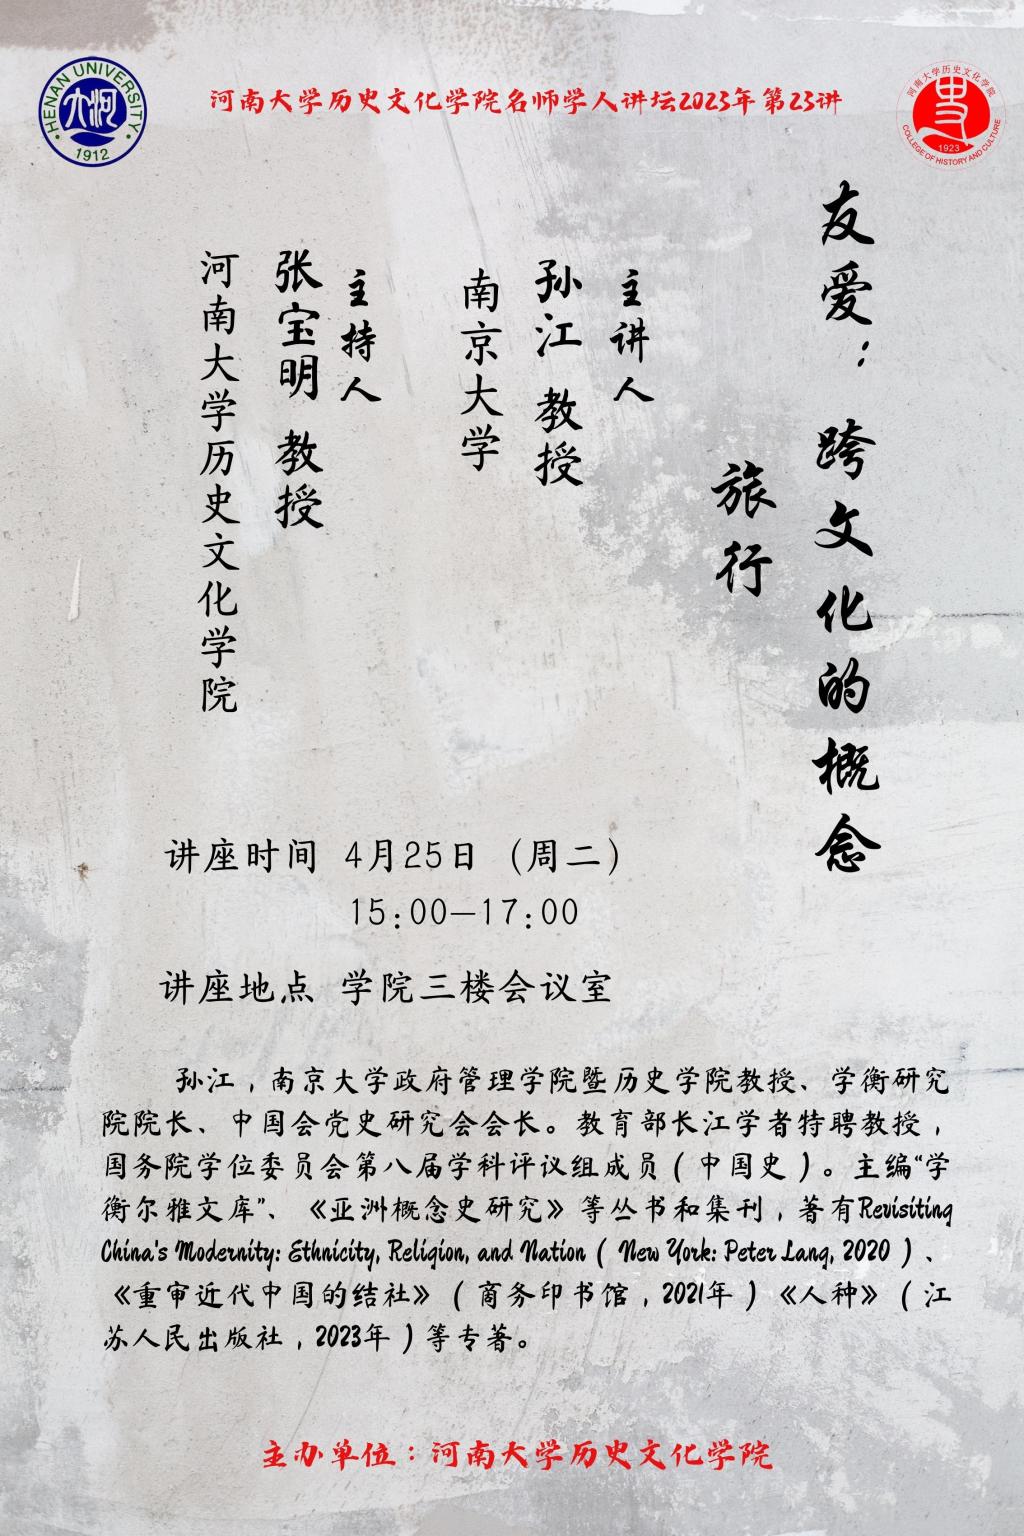 HENAN UNIVERSITY
大河
1912
河南大学历史文化学院名师学人讲坛2023年第23讲
河南大学历史文化学院
史
1923
COLLEGE OF HISTORY AND CULTURE
友爱：跨文化的概念
旅行
主讲人
孙江 教授
南京大学
主持人
张宝明 教授
河南大学历史文化学院
讲座时间 4月25日（周二）
15:00—17:00
讲座地点 学院三楼会议室
孙江，南京大学政府管理学院暨历史学院教授、学衡研究
院院长、中国会党史研究会会长。教育部长江学者特聘教授，
国务院学位委员会第八届学科评议组成员（中国史）。主编“学
衡尔雅文库”、《亚洲概念史研究》等丛书和集刊，著有Revisiting
China's Modernity: Ethnicity, Religion, and Nation（New York: Peter Lang, 2020）、
《重审近代中国的结社》（商务印书馆，2021年）《人种》（江
苏人民出版社，2023年）等专著。
主办单位：河南大学历史文化学院